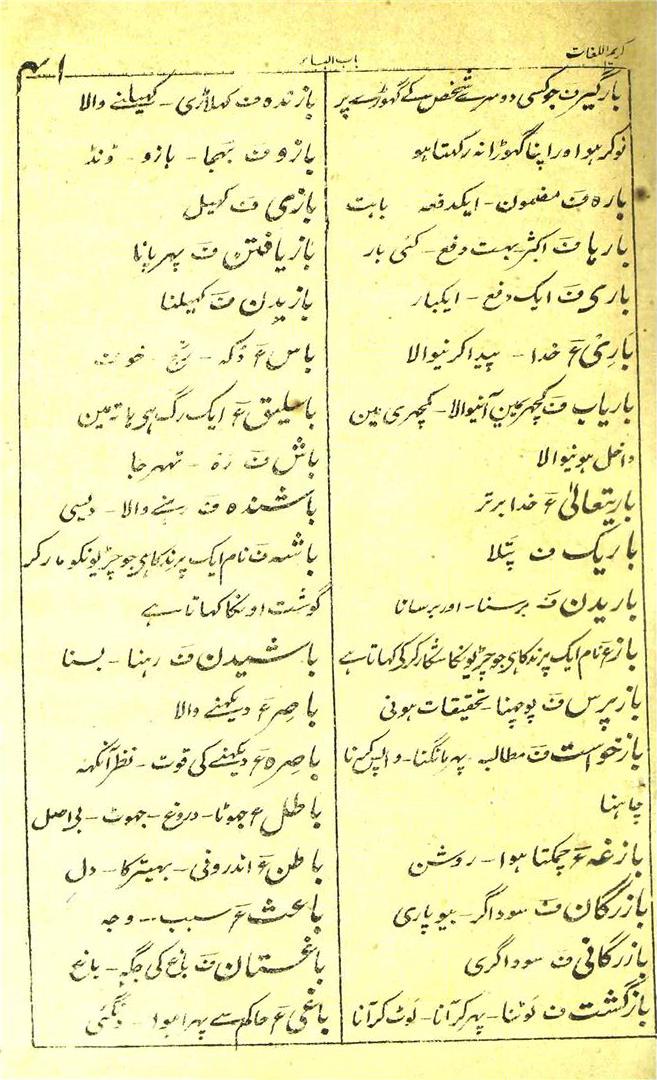 کریم اللغات
باب الباء
۴۱
بارگیر ف جو کسی دوسرے شخص کے گھوڑے پر
نوکر ہوا اور اپنا گھوڑا نہ رکھتا ہو
بارہ ف مضمون - ایکدفعہ بابت
بارہا ف اکثر بہت دفع - کئی بار
باری ف ایک دفع - ایکبار
بَارِیْ ع خدا - پیدا کرنیوالا
باریاب ف کچہری مین آنیوالا - کچہری مین
داخل ہونیوالا
باریتعالیٰ ع خدا برتر
باریک ف پتلا
باریدن ف برسنا - اور برسانا
باز ع نام ایک پرندکا ہی جو چڑیونکا شکار کرکی کہاتا ہے
بازپرس ف پوچہنا - تحقیقات ہونی
بازخواست ف مطالبہ پہر مانگنا - واپس کرنا
چاہنا
بازغہ ع چمکتا ہوا - روشن
بازرگان ف سوداگر - بیوپاری
بازرگانی ف سوداگری
بازگشت ف لوٹنا - پہر کر آنا - لوٹ کر آنا
بازندہ ف کہلاڑی - کھیلنے والا
بازو ف بہجا - بازو - ڈنڈ
بازی ف کہیل
بازیافتن ف پہر پانا
بازیدن ف کہیلنا
باس ع دُکہ - رنج - خوف
باسلیق ع ایک رگ ہی ہاتہ مین
باش ف رہ - ٹہہر جا
باشندہ ف رہنے والا - دیسی
باشہ ف نام ایک پرندکا ہی جو چڑیونکو مارکر
گوشت اونکا کہاتا ہے
باشیدن ف رہنا - بسنا
باصِر ع دیکہنے والا
باصِرہ ع دیکہنے کی قوت - نظر آنکہہ
باطل ع جہوٹا - دروغ - جہوٹ - بی اصل
باطن ع اندرونی - بہیترکا - دل
باعث ع سبب - وجہ
باغستان ف باغ کی جگہ - باغ
باغی ع حاکم سے پہرا ہوا -